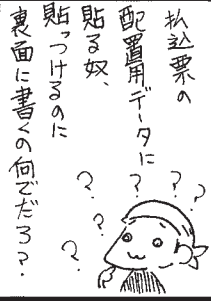 払込票の
配置用データに
貼る奴、
貼っつけるのに
裏面に書くの何でだろ？
？
？
？
？
？
？